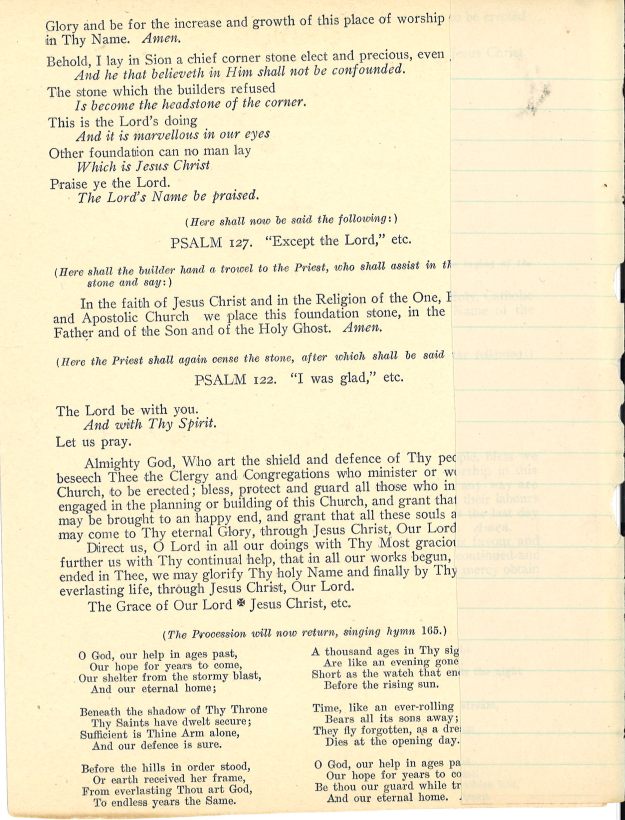 Glory and be for the increase and growth of this place of worship
in Thy Name. Amen.
Behold, I lay in Sion a chief corner stone elect and precious, even
And he that believeth in Him shall not be confounded.
The stone which the builders refused
Is become the headstone of the corner.
This is the Lord's doing
And it is marvellous in our eyes
Other foundation can no man lay
Which is Jesus Christ
Praise ye the Lord.
The Lord's Name be praised.
(Here shall now be said the following:)
PSALM 127. "Except the Lord," etc.
(Here shall the builder hand a trowel to the Priest, who shall assist in
stone and say:)
In the faith of Jesus Christ and in the Religion of the One,
and Apostolic Church we place this foundation stone, in the
Father and of the Son and of the Holy Ghost. Amen.
(Here the Priest shall again cense the stone, after which shall be said
PSALM 122. "I was glad," etc.
The Lord be with you.
And with Thy Spirit.
Let us pray.
Almighty God, Who art the shield and defence of Thy
beseech Thee the Clergy and Congregations who minister or
Church, to be erected; bless, protect and guard all those who in
engaged in the planning or building of this Church, and grant that
may be brought to an happy end, and grant that all these souls
may come to Thy eternal Glory, through Jesus Christ, Our Lord
Direct us, O Lord in all our doings with Thy Most
further us with Thy continual help, that in all our works begun,
ended in Thee, we may glorify Thy holy Name and finally by Thy
everlasting life, through Jesus Christ, Our Lord.
The Grace of Our Lord ✠ Jesus Christ, etc.
(The Procession will now return, singing hymn 165.)
O God, our help in ages past,
Our hope for years to come,
Our shelter from the stormy blast,
And our eternal home;
Beneath the shadow of Thy Throne
Thy Saints have dwelt secure;
Sufficient is Thine Arm alone,
And our defence is sure.
Before the hills in order stood,
Or earth received her frame,
From everlasting Thou art God,
To endless years the Same.
A thousand ages in Thy
Are like an evening gone
Short as the watch that
Before the rising sun.
Time, like an ever-rolling
Bears all its sons away;
They fly forgotten, as a
Dies at the opening day.
O God, our help in ages
Our hope for years to
Be thou our guard while
And our eternal home.